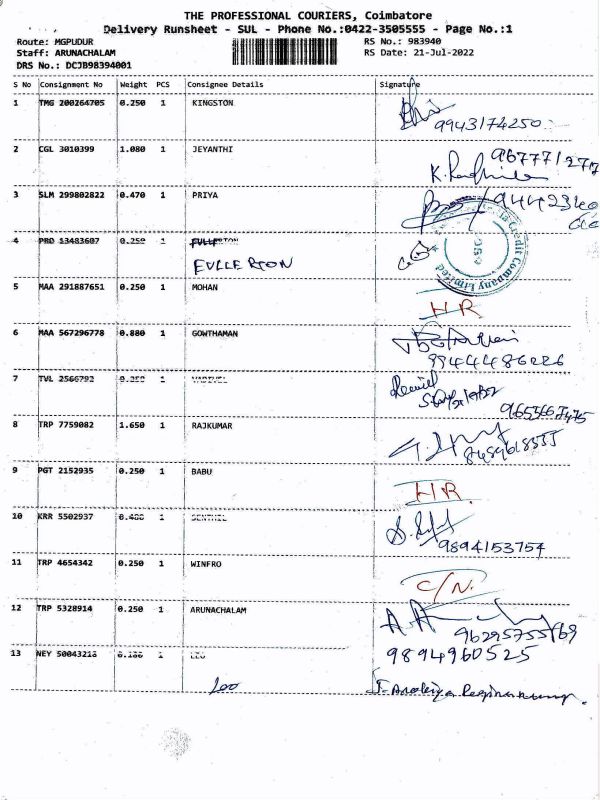 THE PROFESSIONAL COURIERS, Coimbatore
Delivery Runsheet - SUL - Phone No.:0422-3505555 - Page No.:1
Route: MGPUDUR RS No.: 983940
Staff: ARUNACHALAM RS Date: 21-Jul-2022
DRS No.: DCJB98394001
S No Consignment No Weight PCS Consignee Details Signature
1 TMG 200264705 0.250 1 KINGSTON
9943174250
2 CGL 3010399 1.080 1 JEYANTHI
3 SLM 299802822 0.470 1 PRIYA
4 PRO 13483607 0.250 1 FULLERTON
FULLERTON
Credit Company Limited
5 MAA 291887651 0.250 1 MOHAN
HR
6 MAA 567296778 0.880 1 GOWTHAMAN
9944486226
7 TVL 2566792 1
8 TRP 7759082 1.650 1 RAJKUMAR
9 PGT 2152935 0.250 1 BABU
HR
10 KRR 5502937 1 SENTHIL
9894153754
11 TRP 4654342 0.250 1 WINFRO
C/N.
12 TRP 5328914 0.250 1 ARUNACHALAM
9894960525
13 NEY 50043218 1 LEO
Leo